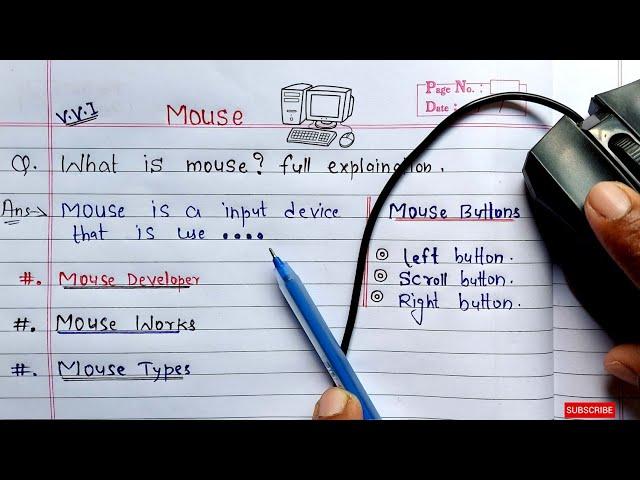 V.V.I
Mouse
Page No. :
Date :
Q. What is mouse? full explaination.
Ans→ Mouse is a input device
that is use ....
#. Mouse Developer
#. Mouse Works
#. Mouse Types
Mouse Buttons
Left button.
Scroll button.
Right button.
SUBSCRIBE